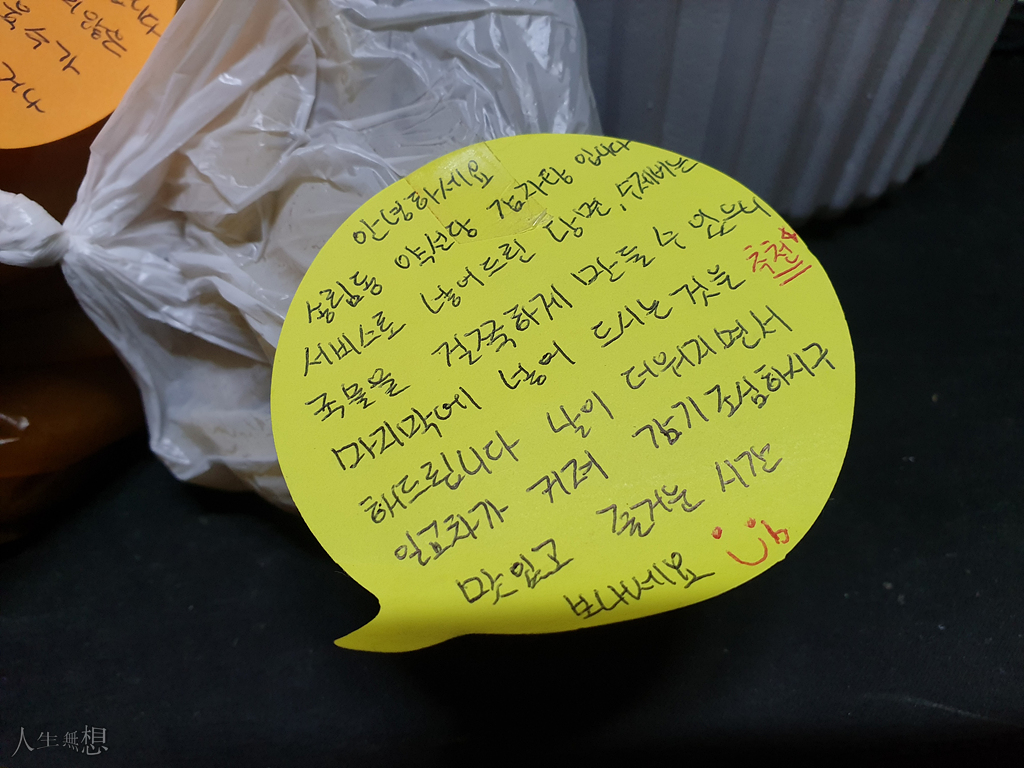 니다
수가
거나
안녕하세요
송림동 약선당 감자탕 입니다
서비스로 넣어드린 당면, 수제비는
국물을 걸쭉하게 만들 수 있으니
마지막에 넣어 드시는 것을 추천
해드립니다 날이 더워지면서
일교차가 커져 감기조심하시구
맛있고 즐거운 시간
보내세요
人生無想